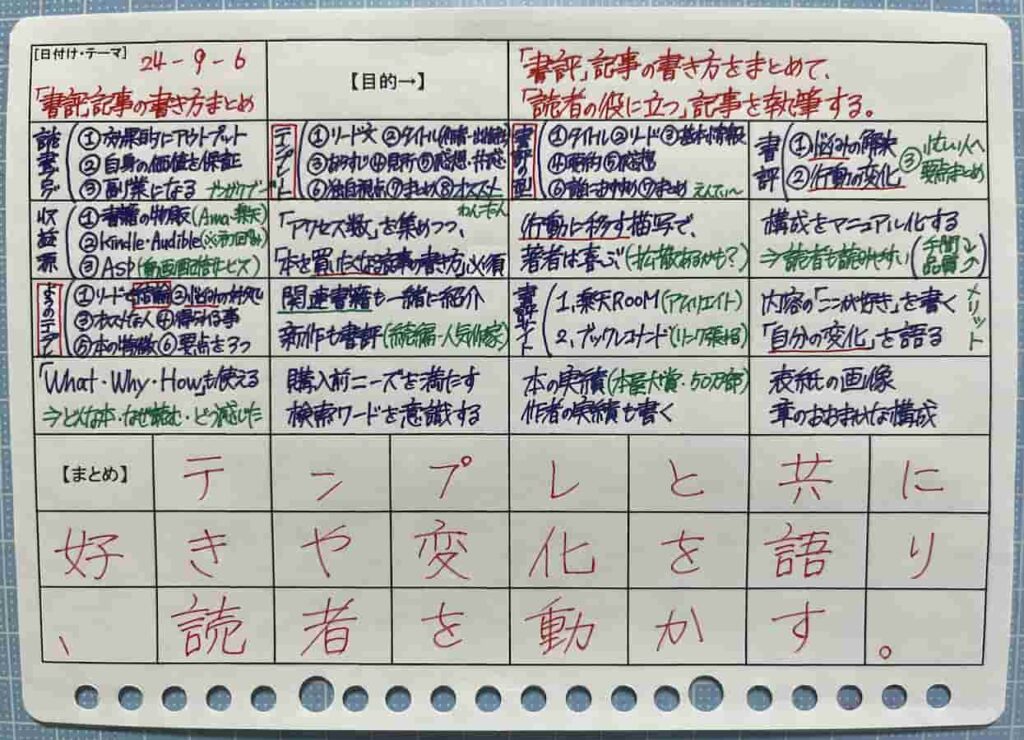 [日付け・テーマ] 24-9-6
「書評」記事の書き方まとめ
【目的→】
「書評」記事の書き方をまとめて、
「読者の役に立つ」記事を執筆する。
①効果的にアウトプット
②自身の価値を保証
③副業になる
テンプレート
①リード文 ②タイトル
③あらすじ ④見所 ⑤感想・共感
⑥独自視点 ⑦まとめ ⑧オススメ
書評の型
①タイトル ②リード ③基本情報
④要約 ⑤感想
⑥誰におすすめ ⑦まとめ
書評
①悩みの解決
②行動の変化
③忙しい人へ
要点まとめ
収益源
①書籍の物販(Ama・楽天)
②Kindle・Audible(※初回のみ)
③ASP(動画配信サービス)
「アクセス数」を集めつつ、
「本を買いたくなる記事の書き方」必須
行動に移す描写で、
著者は喜ぶ(拡散あるかも?)
構成をマニュアル化する
⇒読者も読みやすい(手間↓品質↑)
①リードで結論 ②悩みの対処
③オススメな人 ④得られる事
⑤本の特徴 ⑥要点を3つ
関連書籍も一緒に紹介
新作も書評(続編・人気作家)
書評サイト
1.楽天ROOM(アフィリエイト)
2.ブックレコメンド(リンク張れる)
内容の「ここが好き」を書く
「自分の変化」を語る
メリット
「What・Why・How」も使える
⇒どんな本・なぜ読む・どう感じた
購入前ニーズを満たす
検索ワードを意識する
本の実績(本屋大賞・50万部)
作者の実績も書く
表紙の画像
章のおおまかな構成
【まとめ】テンプレと共に
好きや変化を語り
、読者を動かす。